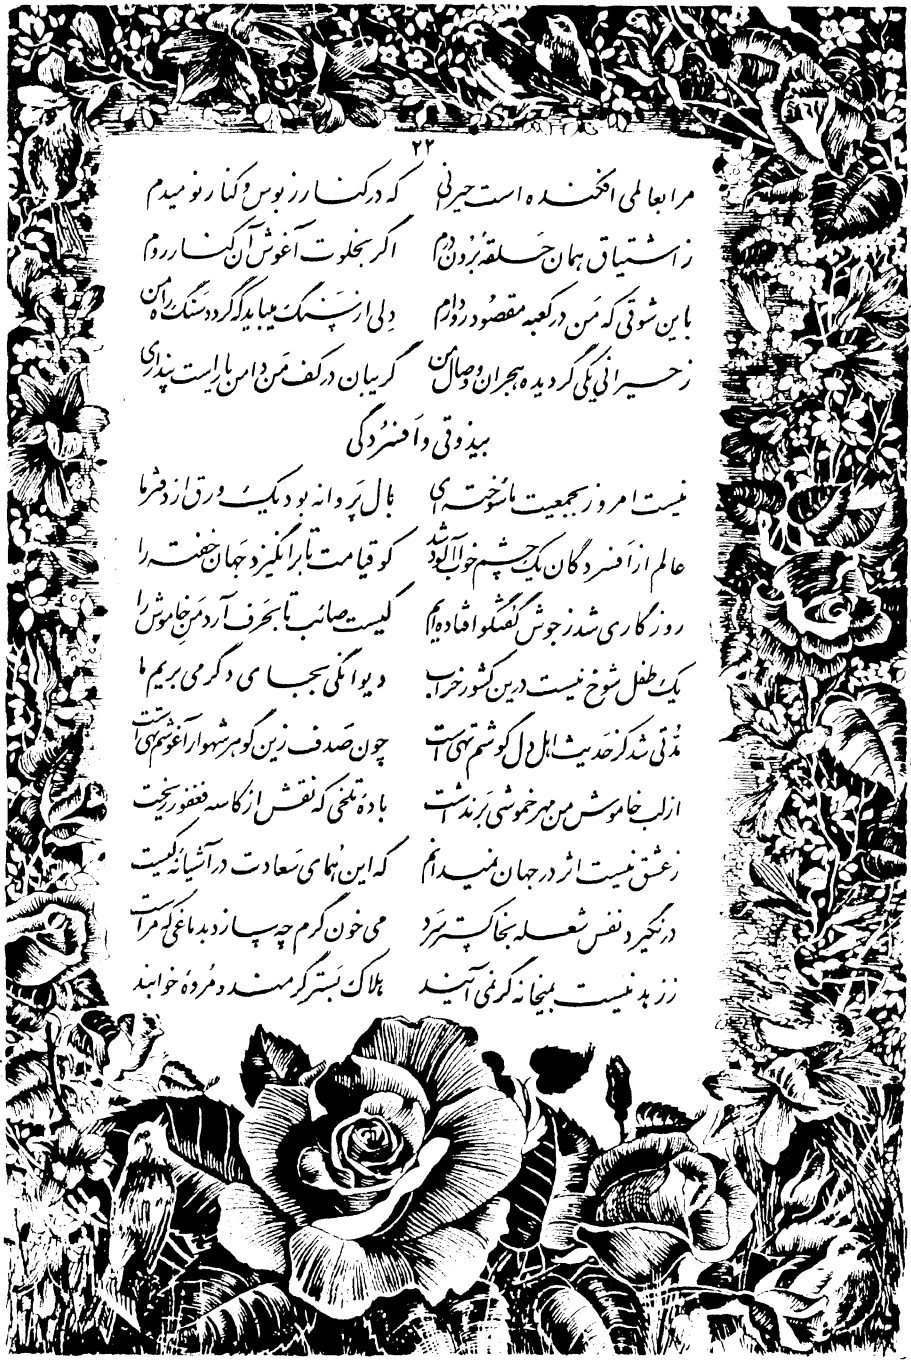 ۲۲
مرا بعالمی افکنده است حیرانی که در کنار ز بوس و کنار نومیدم
ز اشتیاق همان حلقهٔ برون درم اگر بخلوت آغوش آن کنار روم
باین شوقی که من در کعبه مقصود رو دارم دلی از سنگ میباید که گردد سنگ راه من
ز حیرانی یکی گردیده هجران و وصال من گریبان در کف من دامن یار است پنداری
بیذوقی و افسردگی
نیست امروز بجمعیت ما سوخته‌ای بال پروانه بود یک ورق از دفتر ما
عالم از افسردگان یک چشم خواب‌آلود شد کو قیامت تا برانگیزد جهان خفته را
روزگاری شد ز جوش گفتگو افتاده‌ایم کیست صائب تا بحرف آرد من خاموش را
یک طفل شوخ نیست درین کشور خراب دیوانگی بجای دگر می‌بریم ما
مدتی شد کز حدیث اهل دل گوشم تهی است چون صدف زین گوهر شهوار آغوشم تهی است
از لب خاموش من مهر خموشی برنداشت باده تلخی که نقش از کاسه فغفور ریخت
ز عشق نیست اثر در جهان نمیدانم که این همای سعادت در آشیانه کیست
در نگیرد نفس شعله بخاکستر سرد می خون گرم چه سازد بدماغی که مراست
رزید نیست بمیخانه گر نمی‌آیند هلاک بستر گرمند و مردهٔ خوابند